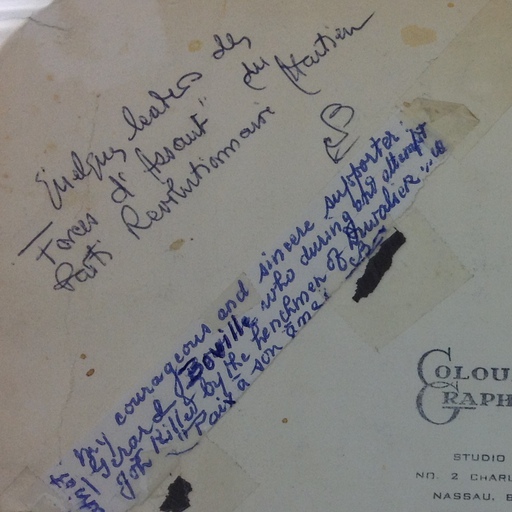 Quelques leaders des
Forces d'Assaut" du
Parti Révolutionnaire Haitien
My courageous and sincere supporter.
Gerard who during and
Joh killed by the henchmen of Duvalier...
Paix à son âme!
COLOU
GRAPH
STUDIO
NO. 2 CHARL
NASSAU, B